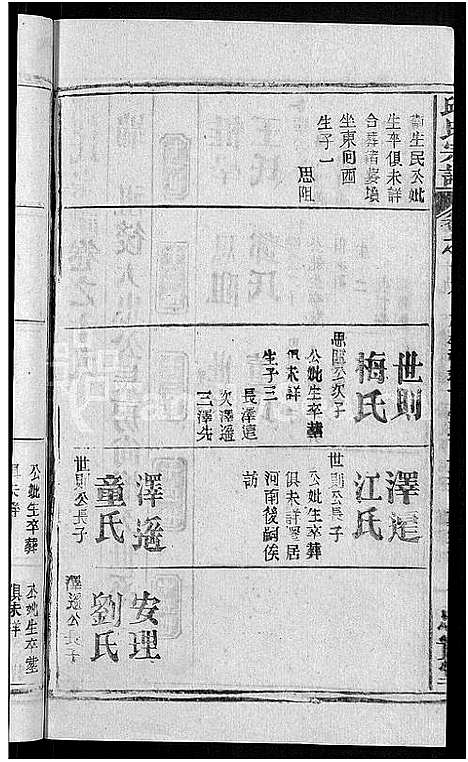 邱氏宗譜
衛生民公妣
生卒俱未詳
合葬諸婆墳
坐東向西
生子一
思阻
世則
梅氏
思阻公次子
公妣生卒葬
俱未詳
生子三
長澤遠
次澤遥
三澤先
澤遠
江氏
世則公長子
公妣生卒葬
俱未詳遷居
河南後嗣俟
訪
澤遥
童氏
世則公長子
安理
劉氏
公長子
公妣生卒葬
俱未詳
公妣生卒葬
俱未詳